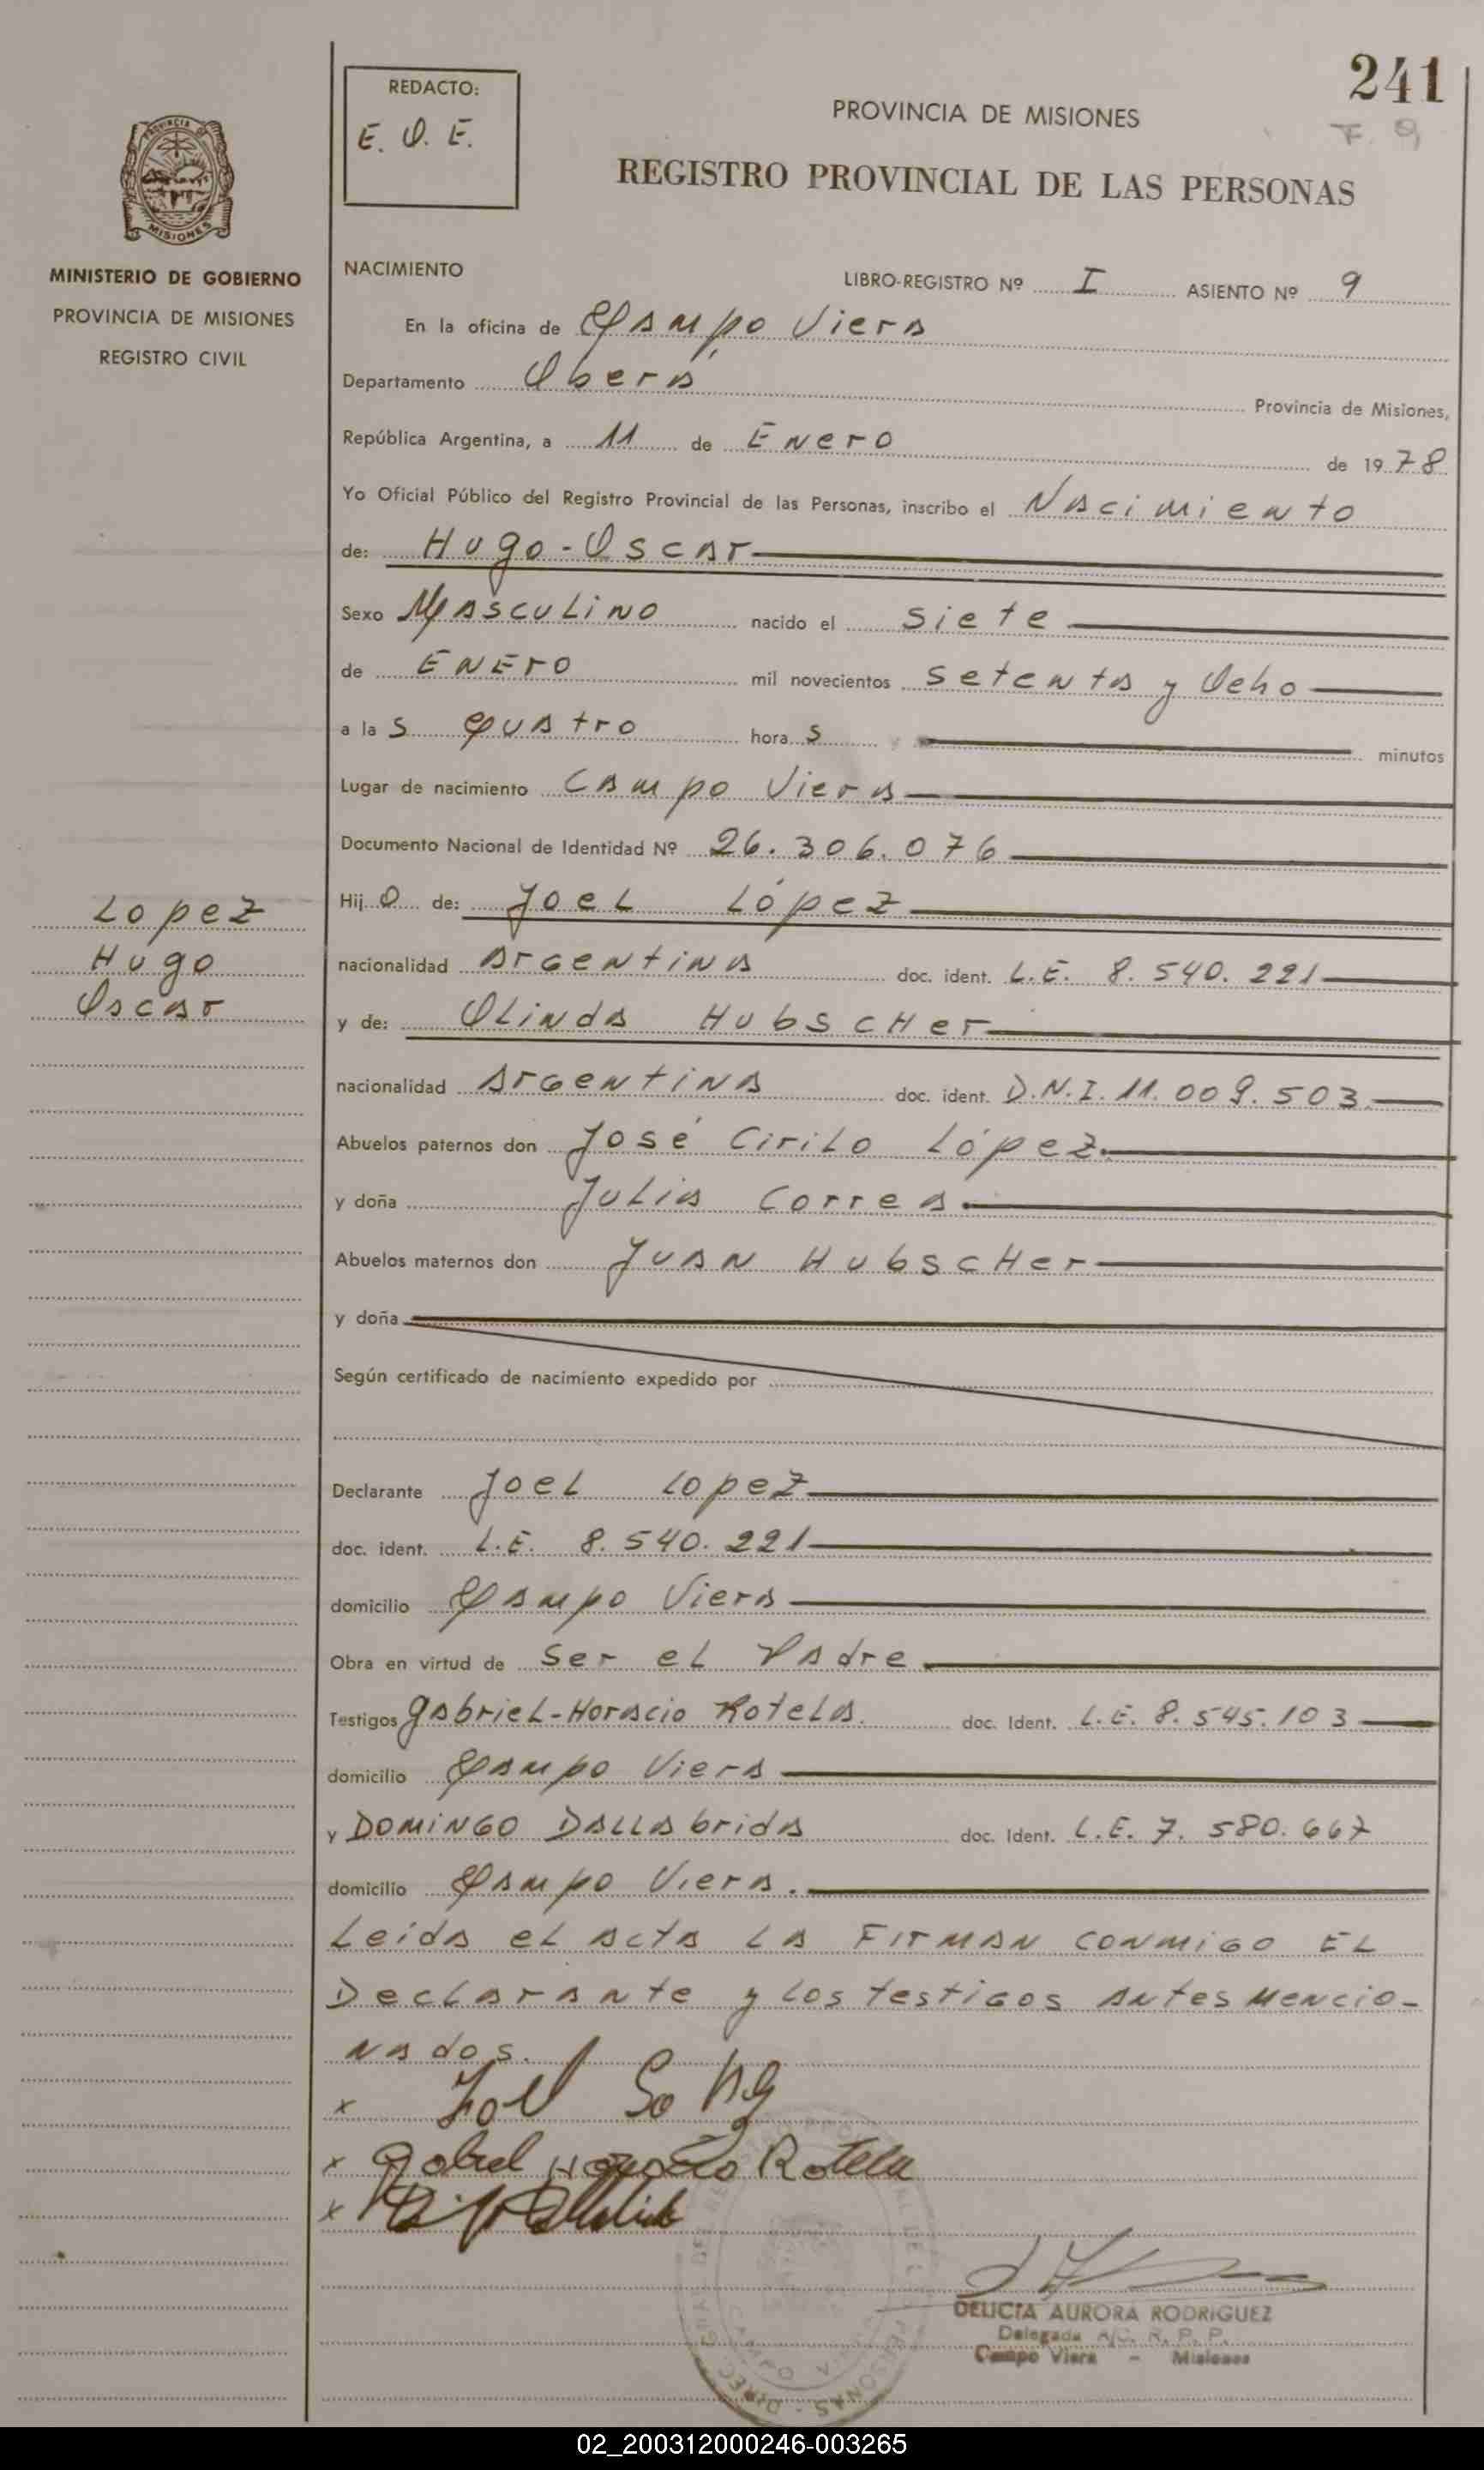 241
F. 9
REDACTO:
E. O. E.
PROVINCIA DE MISIONES
REGISTRO PROVINCIAL DE LAS PERSONAS
MISIONES
MINISTERIO DE GOBIERNO
PROVINCIA DE MISIONES
REGISTRO CIVIL
NACIMIENTO
LIBRO-REGISTRO Nº I ASIENTO Nº 9
En la oficina de Campo Viera
Departamento Oberá Provincia de Misiones,
República Argentina, a 11 de Enero de 1978
Yo Oficial Público del Registro Provincial de las Personas, inscribo el Nacimiento
de: Hugo-Oscar
Sexo Masculino nacido el siete
de ENERO mil novecientos setenta y Ocho
a las cuatro horas minutos
Lugar de nacimiento Campo Viera
Documento Nacional de Identidad Nº 26.306.076
Lopez
Hugo
Oscar
Hijo de: Joel López
nacionalidad Argentina doc. ident. L.E. 8.540.221
y de: Olinda Hubscher
nacionalidad Argentina doc. ident. D.N.I. 11.009.503
Abuelos paternos don José Cirilo López
y doña Julia Correa
Abuelos maternos don Juan Hubscher
y doña
Según certificado de nacimiento expedido por
Declarante Joel Lopez
doc. ident. L.E. 8.540.221
domicilio Campo Viera
Obra en virtud de ser el Padre
Testigos Gabriel-Horacio Rotela. doc. Ident. L.E. 8.545.103
domicilio Campo Viera
y Domingo Dallabrida doc. Ident. L.E. 7.580.667
domicilio Campo Viera.
Leida el acta la firman conmigo el
Declarante y los testigos antes mencio-
nados.
x Joel
x Gabriel Horacio Rotela
x
DELICIA AURORA RODRIGUEZ
Delegada R. P. P.
Campo Viera - Misiones
02_200312000246-003265